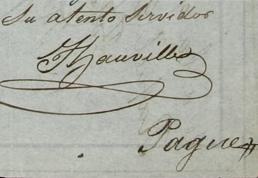 Su atento Servidor
Thauville
Pague